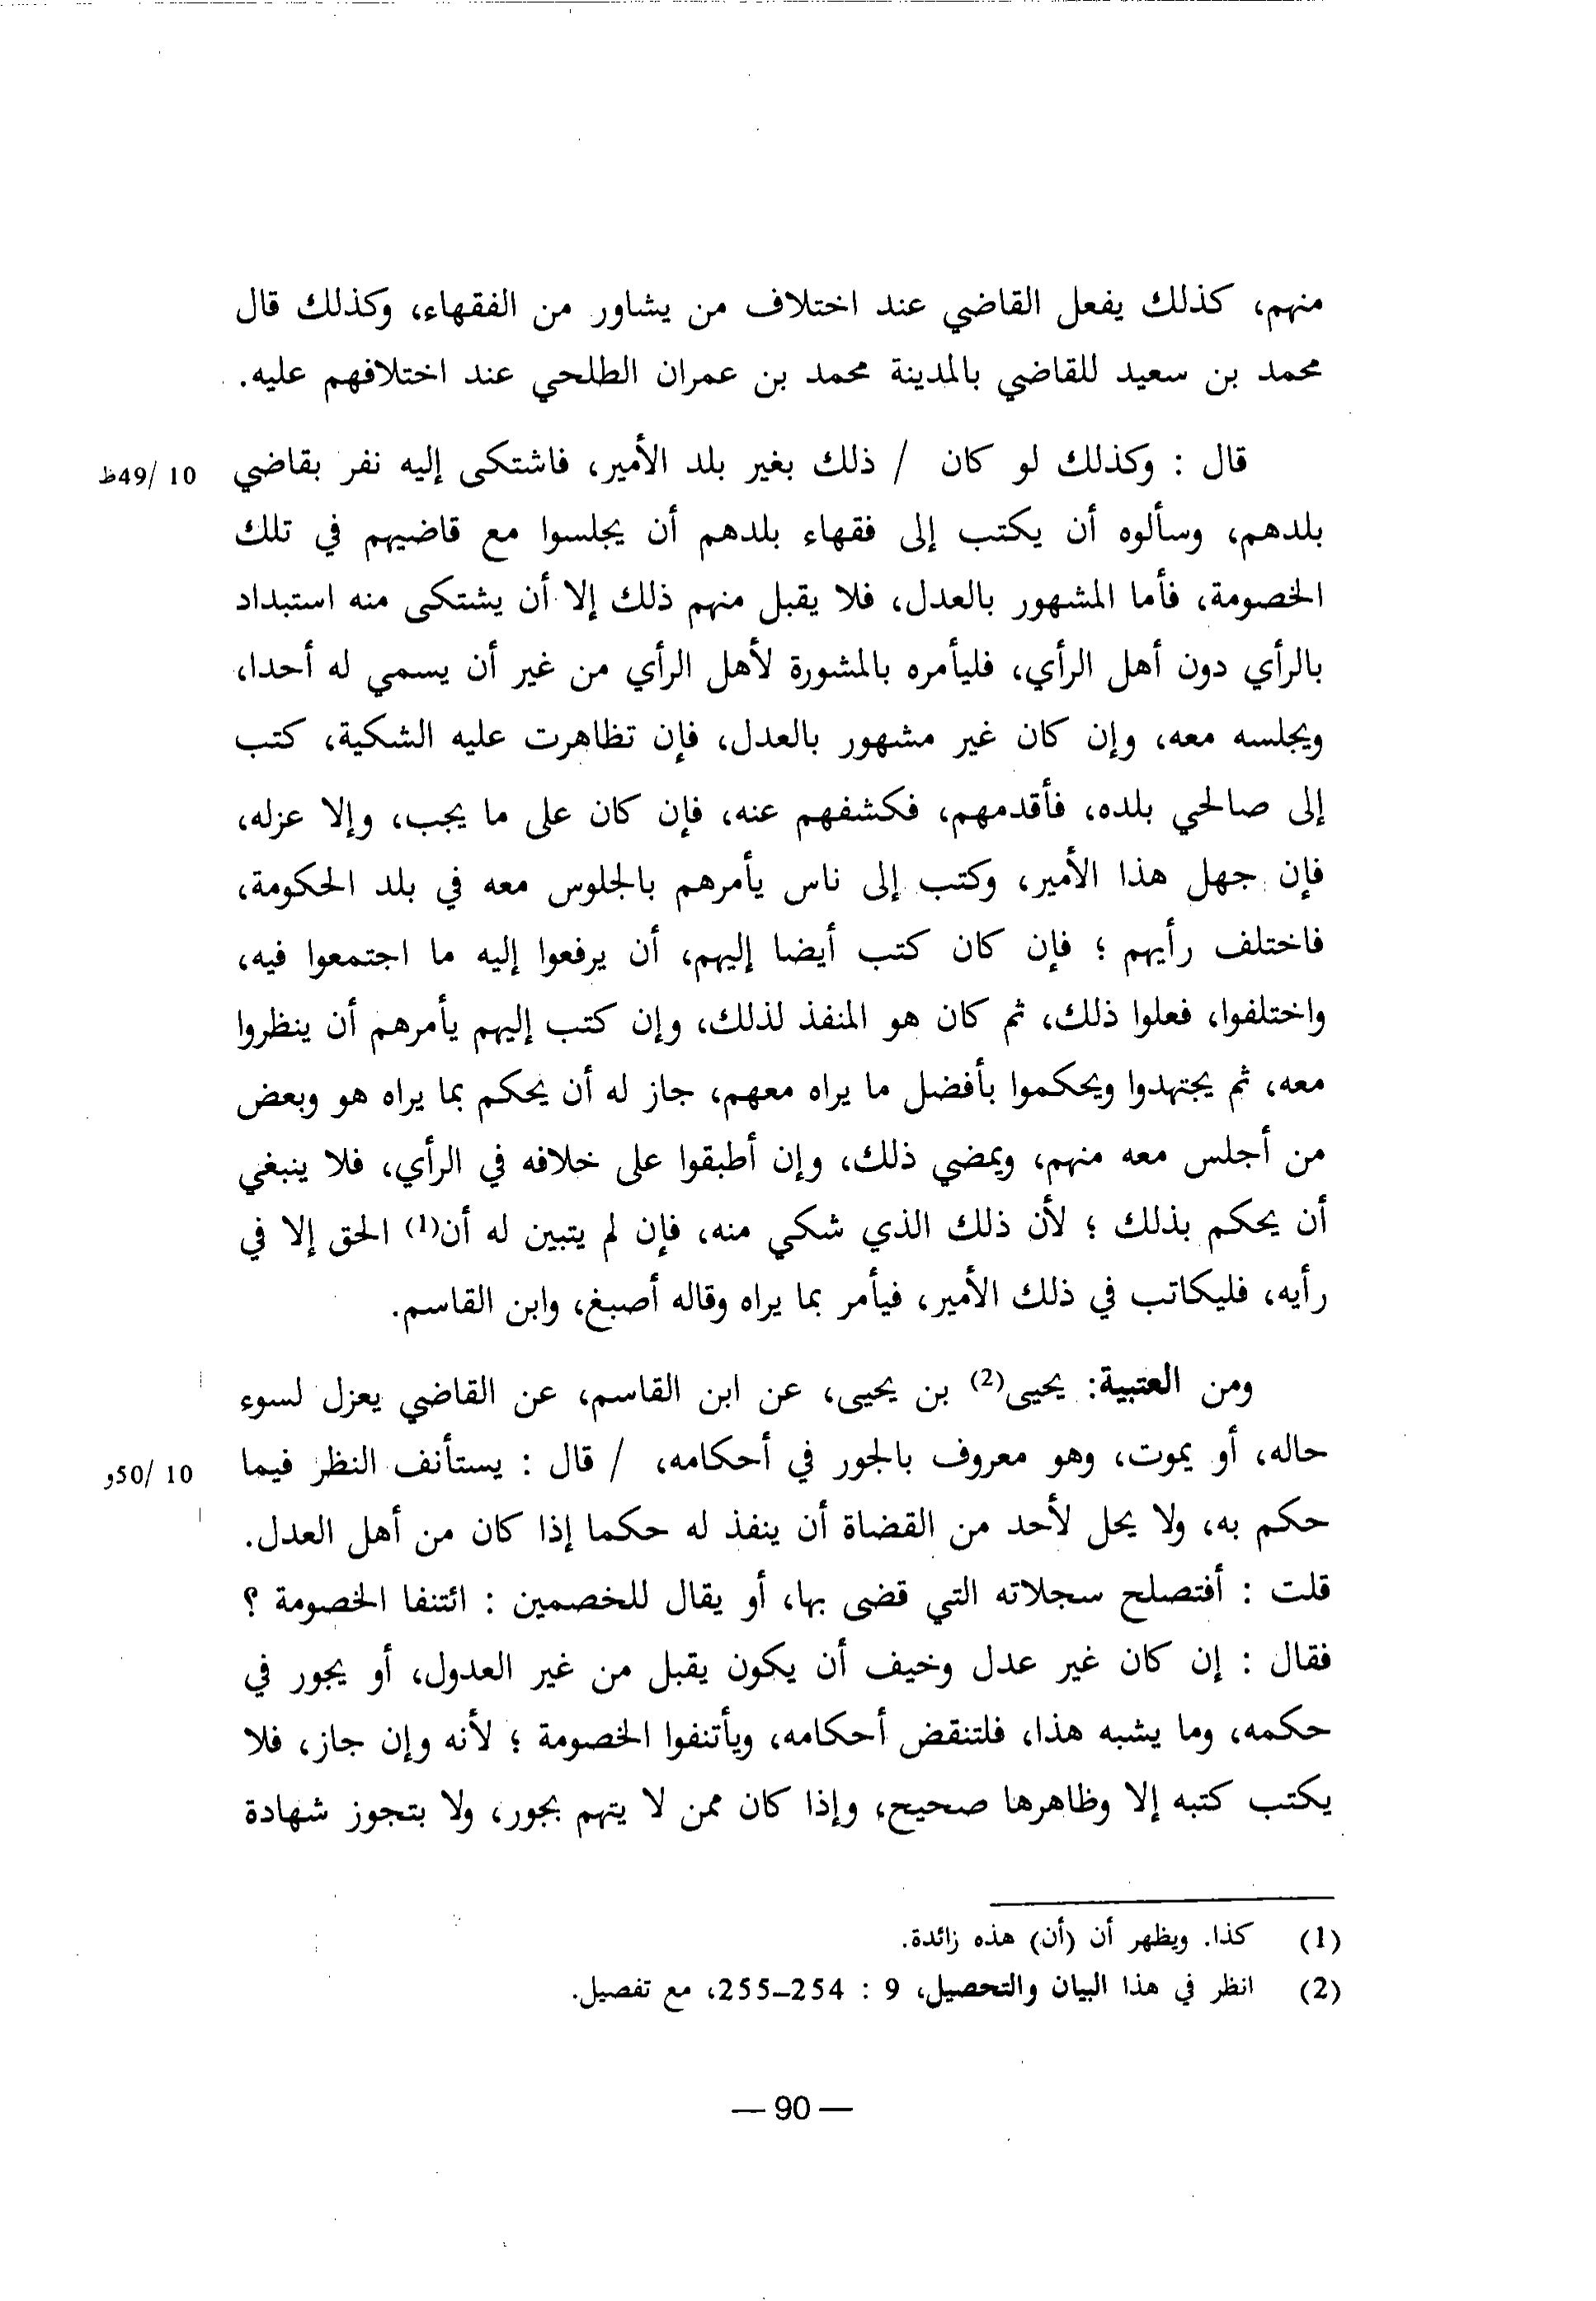 منهم، كذلك يفعل القاضي عند اختلاف من يشاور من الفقهاء، وكذلك قال
محمد بن سعيد للقاضي بالمدينة محمد بن عمران الطلحي عند اختلافهم عليه.
قال : وكذلك لو كان / ذلك بغير بلد الأمير، فاشتكى إليه نفر بقاضي 10 /49ظ
بلدهم، وسألوه أن يكتب إلى فقهاء بلدهم أن يجلسوا مع قاضيهم في تلك
الخصومة، فأما المشهور بالعدل، فلا يقبل منهم ذلك إلا أن يشتكى منه استبداد
بالرأي دون أهل الرأي، فليأمره بالمشورة لأهل الرأي من غير أن يسمي له أحدا،
ويجلسه معه، وإن كان غير مشهور بالعدل، فإن تظاهرت عليه الشكية، كتب
إلى صالحي بلده، فأقدمهم، فكشفهم عنه، فإن كان على ما يجب، وإلا عزله،
فإن جهل هذا الأمير، وكتب إلى ناس يأمرهم بالجلوس معه في بلد الحكومة،
فاختلف رأيهم ؛ فإن كان كتب أيضا إليهم، أن يرفعوا إليه ما اجتمعوا فيه،
واختلفوا، فعلوا ذلك، ثم كان هو المنفذ لذلك، وإن كتب إليهم يأمرهم أن ينظروا
معه، ثم يجتهدوا ويحكموا بأفضل ما يراه معهم، جاز له أن يحكم بما يراه هو وبعض
من أجلس معه منهم، ويمضي ذلك، وإن أطبقوا على خلافه في الرأي، فلا ينبغي
أن يحكم بذلك ؛ لأن ذلك الذي شكي منه، فإن لم يتبين له أن(1) الحق إلا في
رأيه، فليكاتب في ذلك الأمير، فيأمر بما يراه وقاله أصبغ، وابن القاسم.
ومن العتبية: يحيى(2) بن يحيى، عن ابن القاسم، عن القاضي يعزل لسوء
حاله، أو يموت، وهو معروف بالجور في أحكامه، / قال : يستأنف النظر فيما 10 /50و
حكم به، ولا يحل لأحد من القضاة أن ينفذ له حكما إذا كان من أهل العدل.
قلت : أفتصلح سجلاته التي قضى بها، أو يقال للخصمين : ائتنفا الخصومة ؟
فقال : إن كان غير عدل وخيف أن يكون يقبل من غير العدول، أو يجور في
حكمه، وما يشبه هذا، فلتنقض أحكامه، ويأتنفوا الخصومة ؛ لأنه وإن جاز، فلا
يكتب كتبه إلا وظاهرها صحيح، وإذا كان ممن لا يتهم بجور، ولا بتجوز شهادة
(1) كذا. ويظهر أن (أن) هذه زائدة.
(2) انظر في هذا البيان والتحصيل، 9 : 254–255، مع تفصيل.
— 90 —